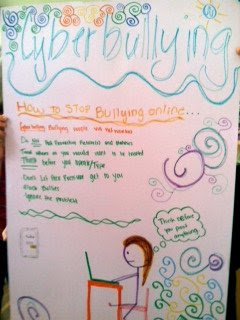 Cyberbullying
How to STOP Bullying online...
Cyber bullying Bullying people via the
Do not
Treat others as you would want to be treated
Think before you Speak/Type
Don't Let Peer Pressure get to you
Block Bullies
Ignore the
Think before
you Post
anything